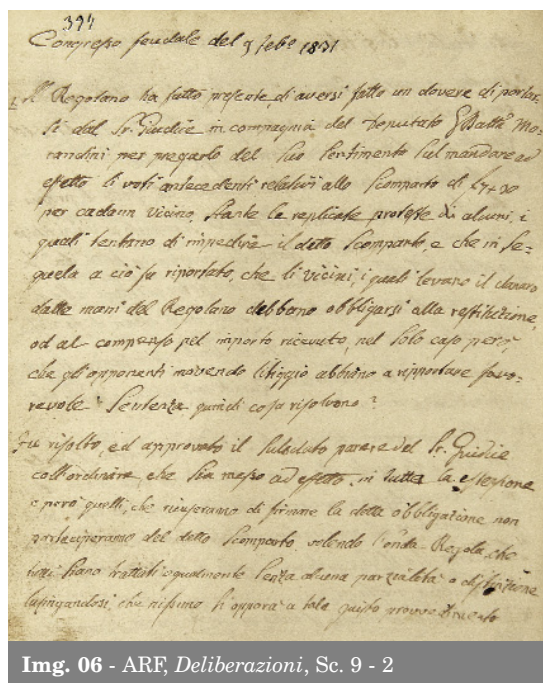 394
Congresso feudale del 9 febº 1831
1. Il Regolano ha fatto presente, di aversi fatto un dovere di portar-
si dal Sr. Giudice in compagnia del Deputato GBatta Mo=
randini per pregarlo del suo sentimento sul mandare ad
effetto li voti antecedenti relativi allo scomparto di
per cadaun vicino, stante le replicate proteste di alcuni, i
quali tentano di impedire il detto scomparto, e che in se=
guela a ciò fu riportato, che li vicini, i quali levano il danaro
dalle mani del Regolano debbano obbligarsi alla restituzione,
od al compenso pel importo ricevuto, nel solo caso però,
che gl'opponenti movendo litiggio abbiano a ripportare favo-
revole Sentenza quindi cosa risolvono?
Fu risolto, ed approvato il suddetto parere del Sr. Giudice
coll'ordinare, che sia messo ad effetto in tutta la estensione
e però quelli, che ricuseranno di firmare la detta obbligazione non
parteciperanno del detto scomparto, volendo l'onda Regola, che
tutti siano trattati egualmente senza alcuna parzialità o distinzione
lusingandosi, che nissuno si opporà a tale giusto provvedimento
Img. 06 - ARF, Deliberazioni, Sc. 9 - 2